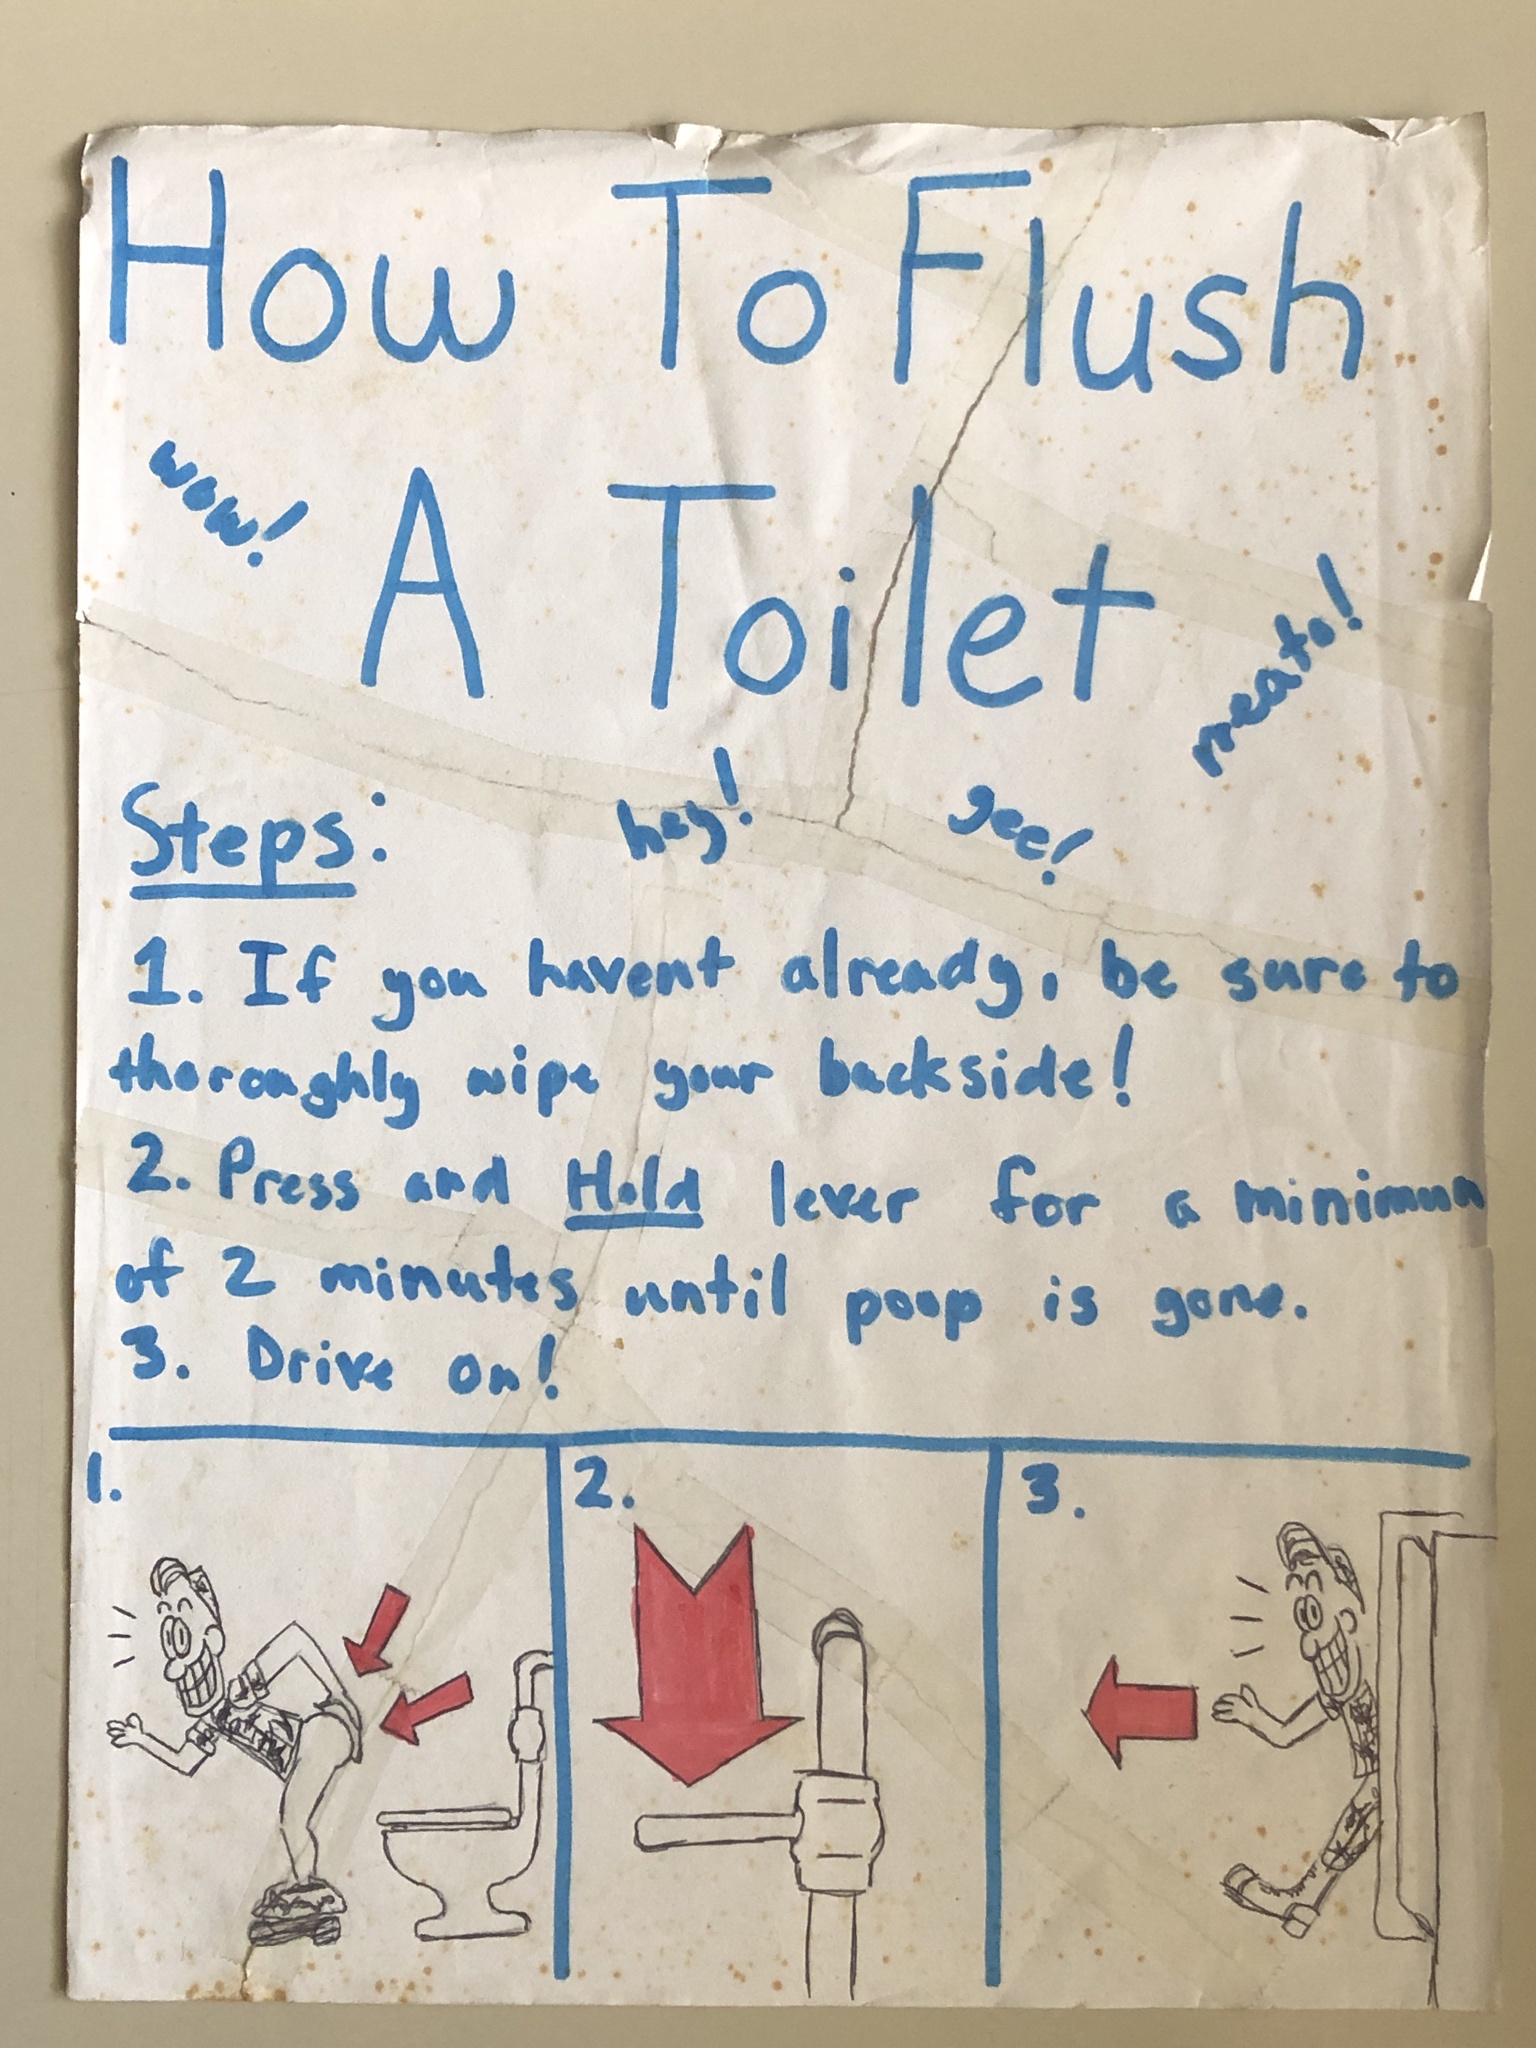 How To Flush
wow!
A Toilet
neato!
Steps:
hey!
gee!
1. If you havent already, be sure to
thoroughly wipe your backside!
2. Press and Hold lever for a minimum
of 2 minutes until poop is gone.
3. Drive on!
1.
2.
3.